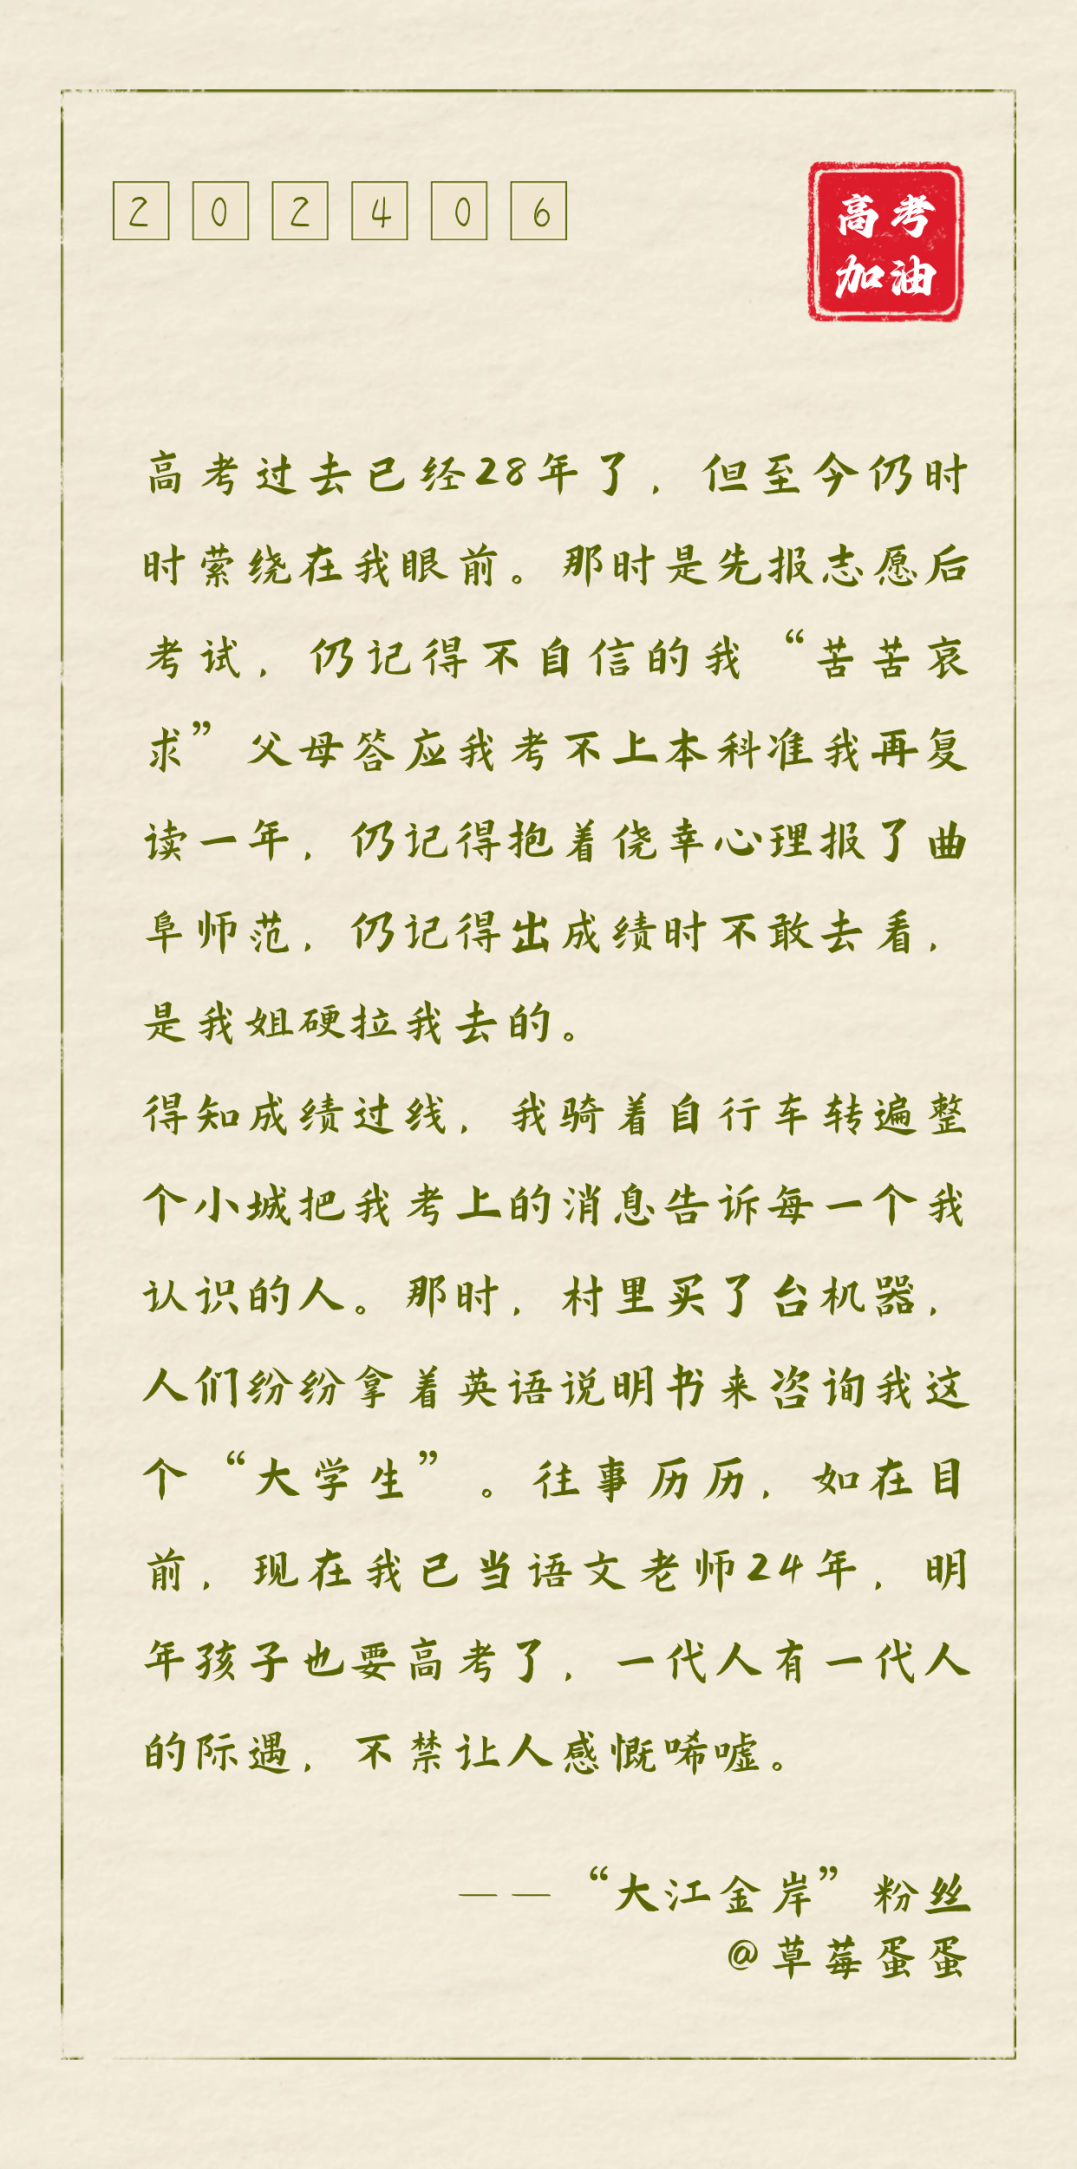 202406
高考
加油
高考过去已经28年了，但至今仍时
时萦绕在我眼前。那时是先报志愿后
考试，仍记得不自信的我“苦苦哀
求”父母答应我考不上本科准我再复
读一年，仍记得抱着侥幸心理报了曲
阜师范，仍记得出成绩时不敢去看，
是我姐硬拉我去的。
得知成绩过线，我骑着自行车转遍整
个小城把我考上的消息告诉每一个我
认识的人。那时，村里买了台机器，
人们纷纷拿着英语说明书来咨询我这
个“大学生”。往事历历，如在目
前，现在我已当语文老师24年，明
年孩子也要高考了，一代人有一代人
的际遇，不禁让人感慨唏嘘。
——“大江金岸”粉丝
@草莓蛋蛋